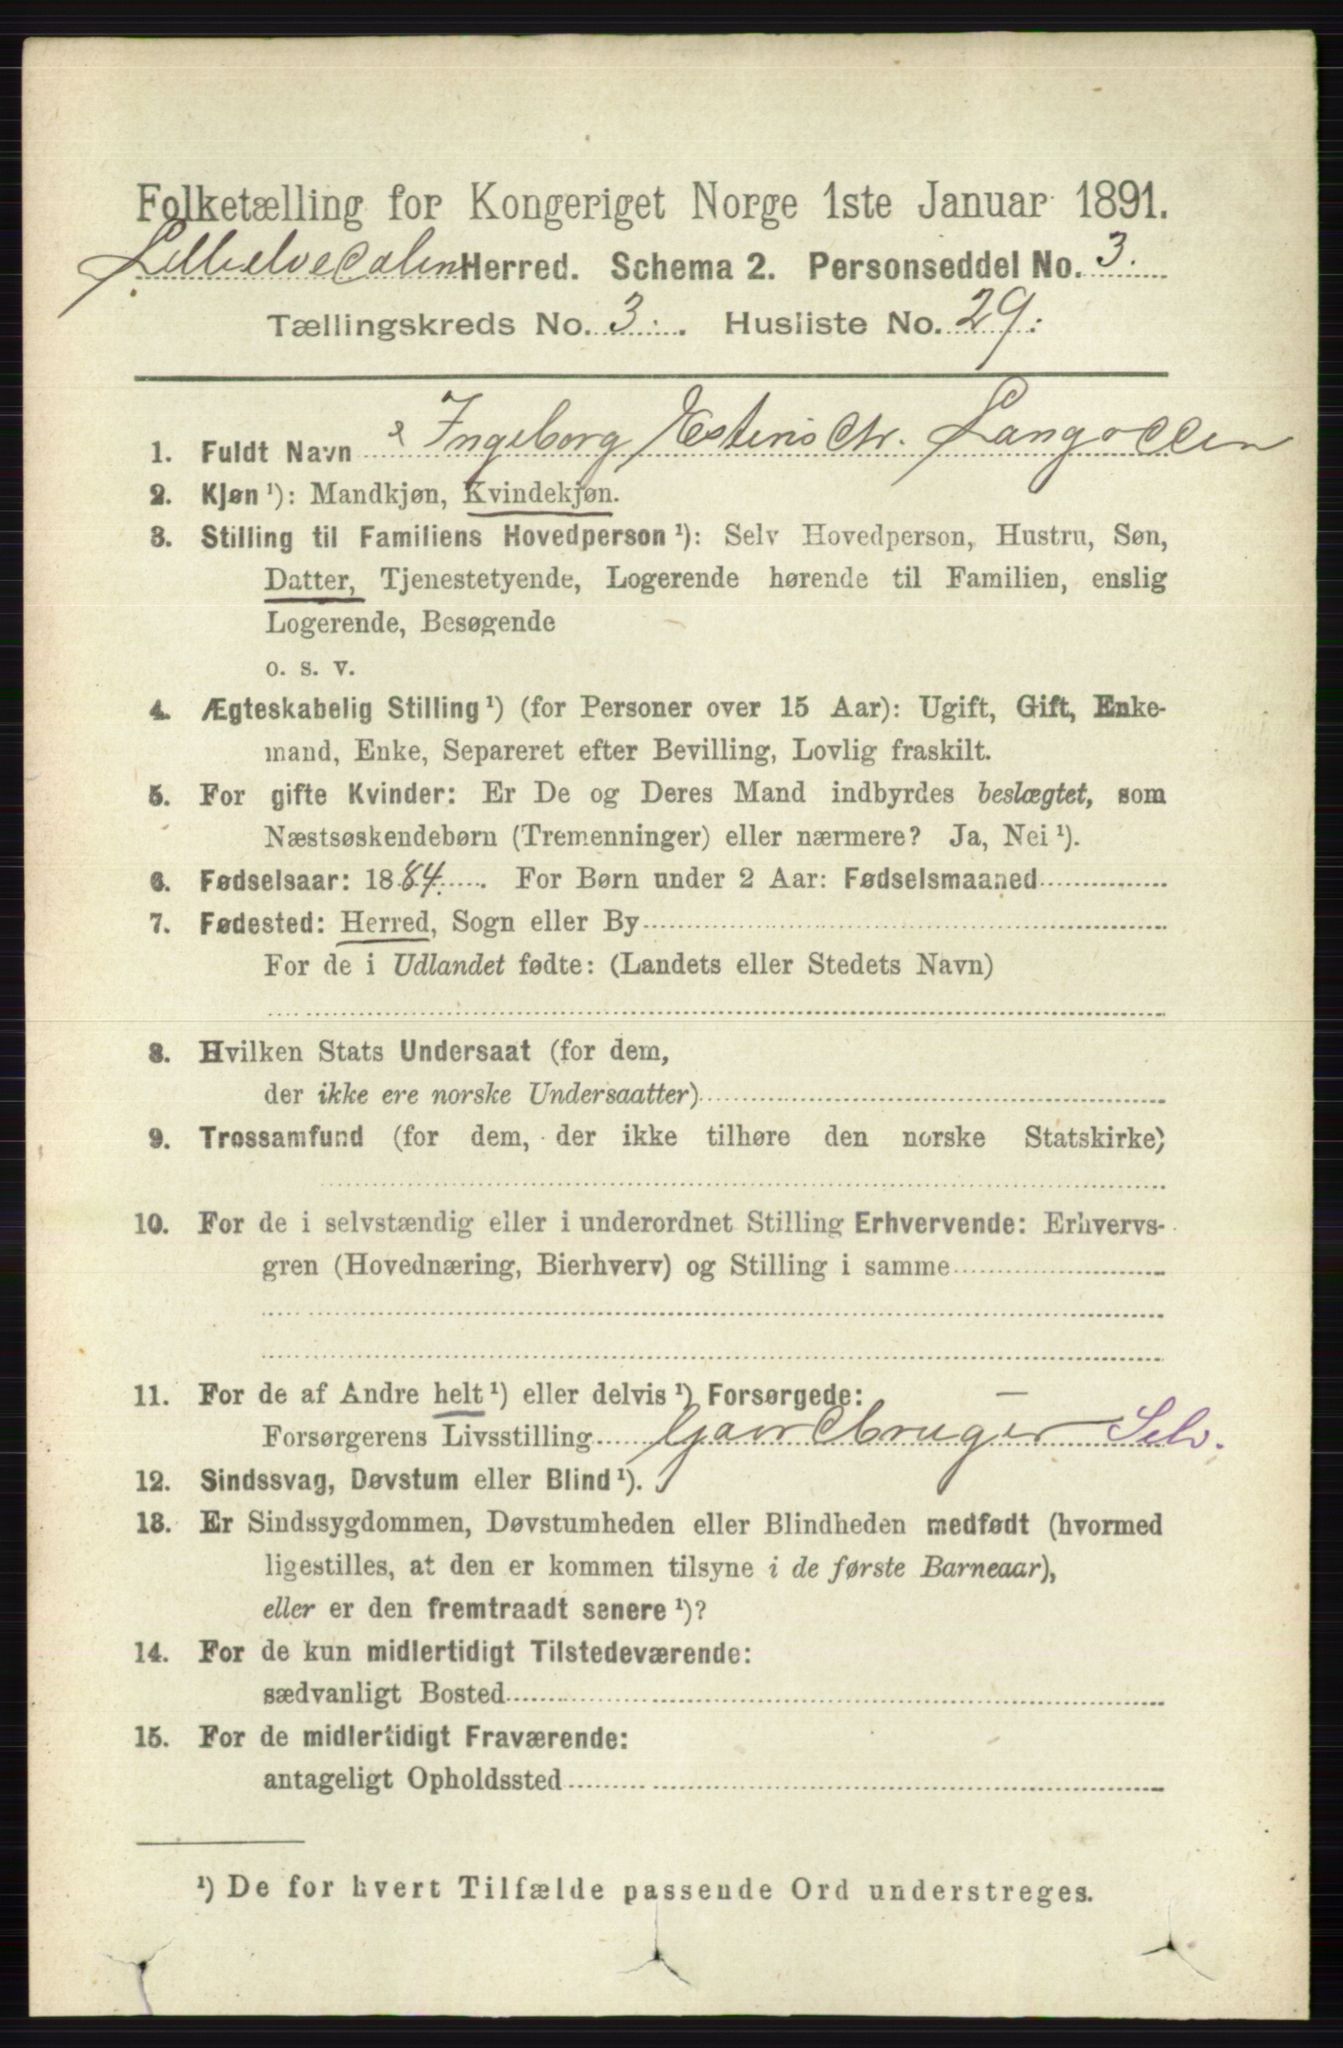 Folketælling for Kongeriget Norge 1ste Januar 1891.
Lilleelvedalen Herred. Schema 2. Personseddel No. 3.
Tællingskreds No. 3. Husliste No. 29.
1. Fuldt Navn Ingeborg Estensdtr. Langodden
2. Kjøn ¹): Mandkjøn, Kvindekjøn.
3. Stilling til Familiens Hovedperson ¹): Selv Hovedperson, Hustru, Søn,
Datter, Tjenestetyende, Logerende hørende til Familien, enslig
Logerende, Besøgende
o. s. v.
4. Ægteskabelig Stilling ¹) (for Personer over 15 Aar): Ugift, Gift, Enke-
mand, Enke, Separeret efter Bevilling, Lovlig fraskilt.
5. For gifte Kvinder: Er De og Deres Mand indbyrdes beslægtet, som
Næstsøskendebørn (Tremenninger) eller nærmere? Ja, Nei ¹).
6. Fødselsaar: 1884. For Børn under 2 Aar: Fødselsmaaned
7. Fødested: Herred, Sogn eller By
For de i Udlandet fødte: (Landets eller Stedets Navn)
8. Hvilken Stats Undersaat (for dem,
der ikke ere norske Undersaatter)
9. Trossamfund (for dem, der ikke tilhøre den norske Statskirke)
10. For de i selvstændig eller i underordnet Stilling Erhvervende: Erhvervs-
gren (Hovednæring, Bierhverv) og Stilling i samme
11. For de af Andre helt ¹) eller delvis ¹) Forsørgede:
Forsørgerens Livsstilling Gaardbruger - Selv.
12. Sindssvag, Døvstum eller Blind ¹).
13. Er Sindssygdommen, Døvstumheden eller Blindheden medfødt (hvormed
ligestilles, at den er kommen tilsyne i de første Barneaar),
eller er den fremtraadt senere ¹)?
14. For de kun midlertidigt Tilstedeværende:
sædvanligt Bosted
15. For de midlertidigt Fraværende:
antageligt Opholdssted
¹) De for hvert Tilfælde passende Ord understreges.